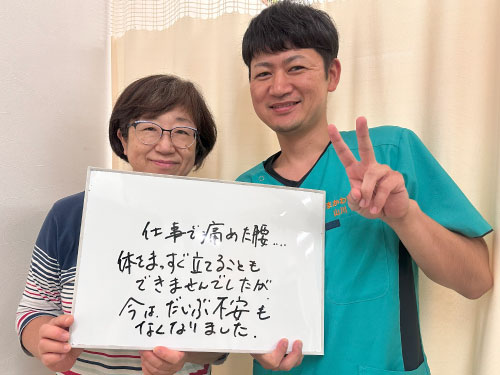 仕事で痛めた腰....
体をまっすぐ立てることも
できませんでしたが
今は、だいぶ不安も
なくなりました.